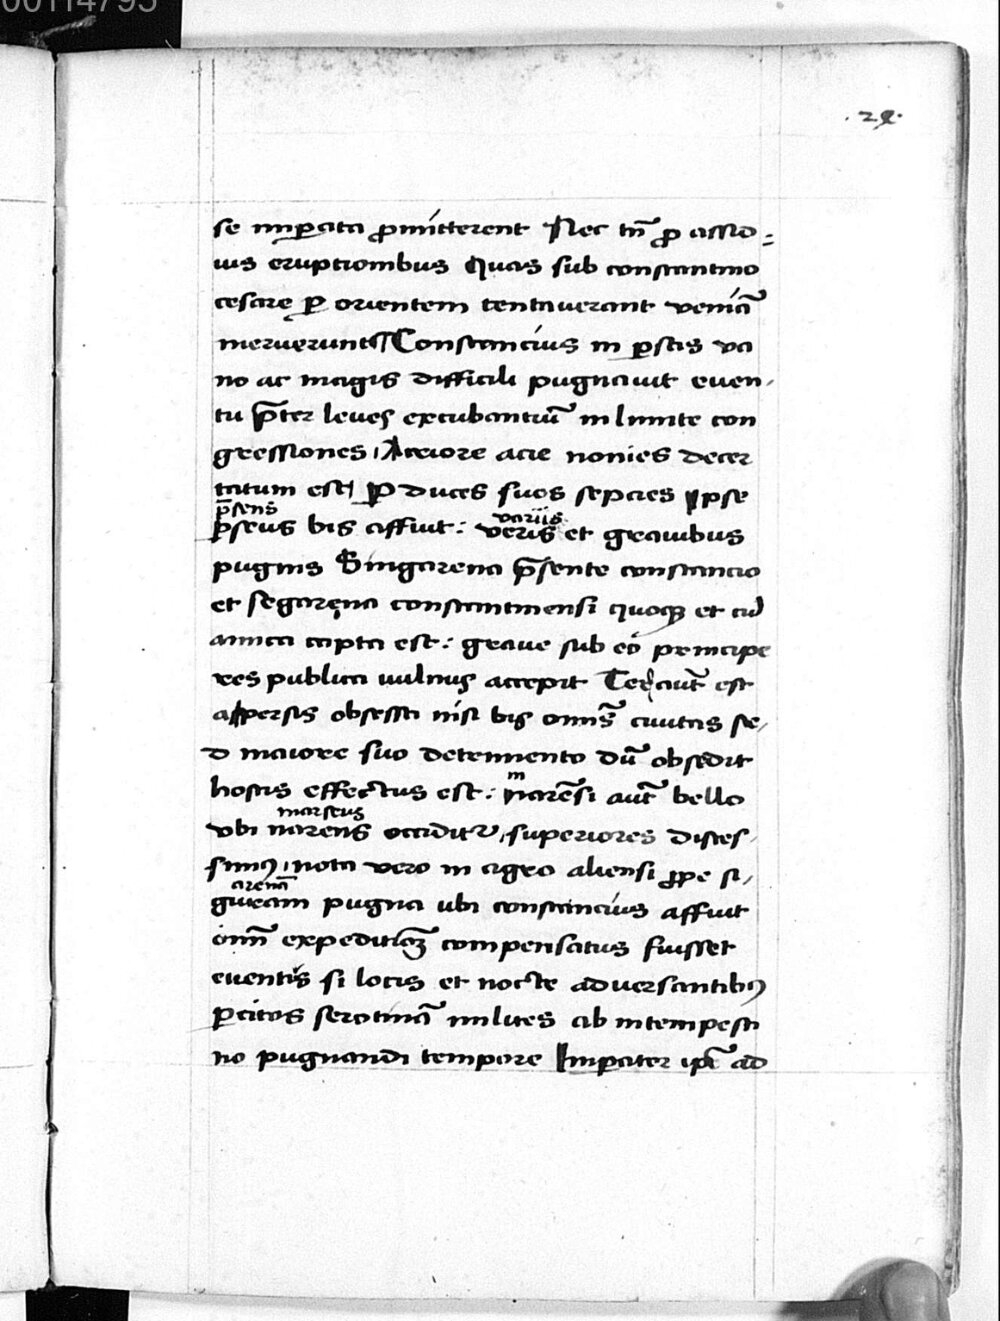 00114795
.29.
se imꝑata ꝓmitterent Nec tn̄ ꝓ assid=
uis eruptionibus Quas sub constantino
cesare ꝑ orientem tentaverant veniā
meruerunt Constancius in ꝑsas va
no ac magis difficili pugnauit even-
tu p̄ter leues excubantiū in limite con
gressiones Acriore acie nonies decer
tatum est ꝑ duces suos sepcies ipse
p̄sens
ꝑseus bis affuit: veris et grauibus
variis
pugnis Singarena p̄sente constancio
et segarena constantinensi quoqꝫ et cū
amica capta est: graue sub eo principe
res publica uulnus accepit Ter aut̄ est
a ꝑersis obsessa nisi bis omīs ciuitas se-
d maiore suo detrimento dū obsedit
hostis effectus est: narēsi aut̄ bello
m
marseus
vbi narens occidit̄ superiores disces-
simꝰ nota vero in agro aliensi ꝓpe si-
arenā
giueam pugna ubi constancius affuit
om̄ expeditionū compensatus fuisset
euentus si locis et nocte adversantibꝰ
ꝑcitos serotinā milites ab intempesti
no pugnandi tempore Imperater ip̄e ad